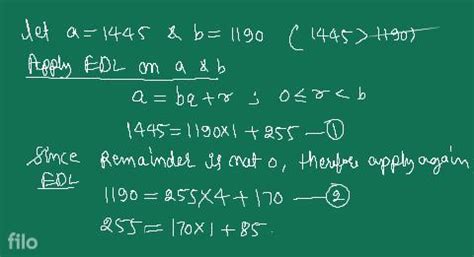 let a = 1445 & b = 1190 (1445 > 1190)
Apply EDL on a & b
a = bq + r ; 0 ≤ r < b
1445 = 1190 × 1 + 255 — ①
Since Remainder is not 0, therefore apply again
EDL
1190 = 255 × 4 + 170 — ②
255 = 170 × 1 + 85.
filo